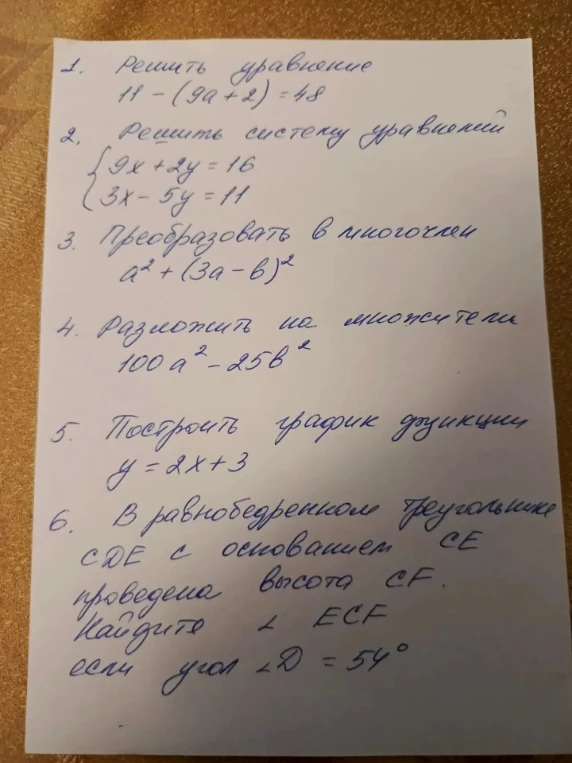 1. Решить уравнение
11 - (9a + 2) = 48
2. Решить систему уравнений
{ 9x + 2y = 16
3x - 5y = 11
3. Преобразовать в многочлен
a² + (3a - b)²
4. Разложить на множители
100a² - 25b²
5. Построить график функции
y = 2x + 3
6. В равнобедренном треугольнике
CDE с основанием CE
проведена высота CF.
Найдите ∠ ECF
если угол ∠D = 54°